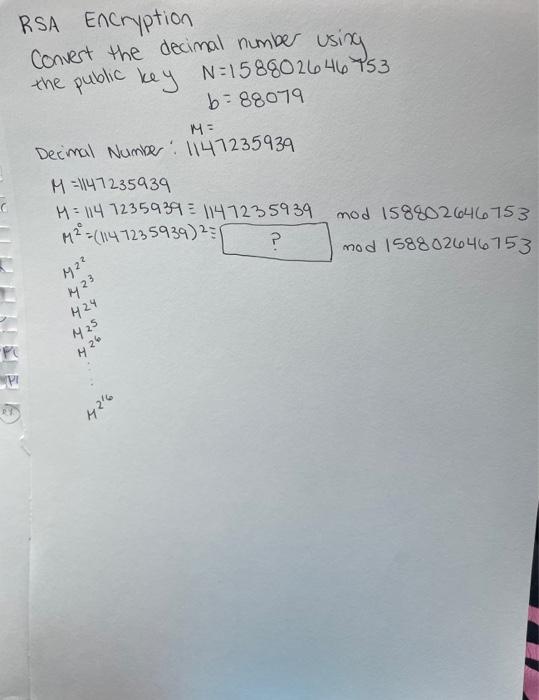 RSA Encryption
Convert the decimal number using
the public key N=158802646753
b=88079
M=
Decimal Number: 1147235939
M=1147235939
M=1147235939≡1147235939 mod 158802646753
M²°=(1147235939)²≡ ? mod 158802646753
M2²
M2³
M24
M25
M26
.
.
.
M2¹⁶